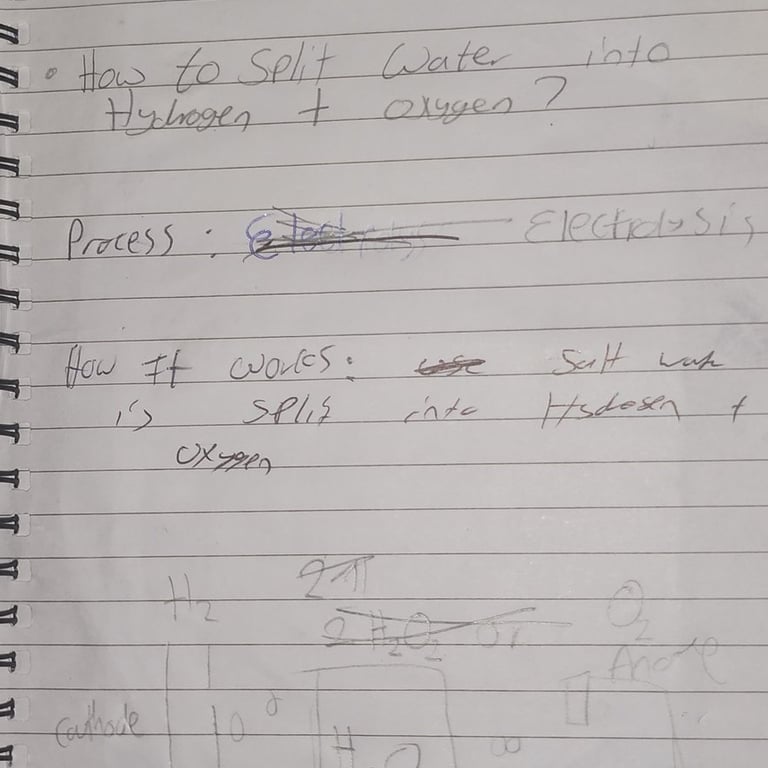 • How to Split Water into
Hydrogen + Oxygen?
Process: Electrolysis
How It Works: Salt
is split into +
Oxygen
H₂ 2π O₂
2 H₂O₂
Anode
Cathode
H